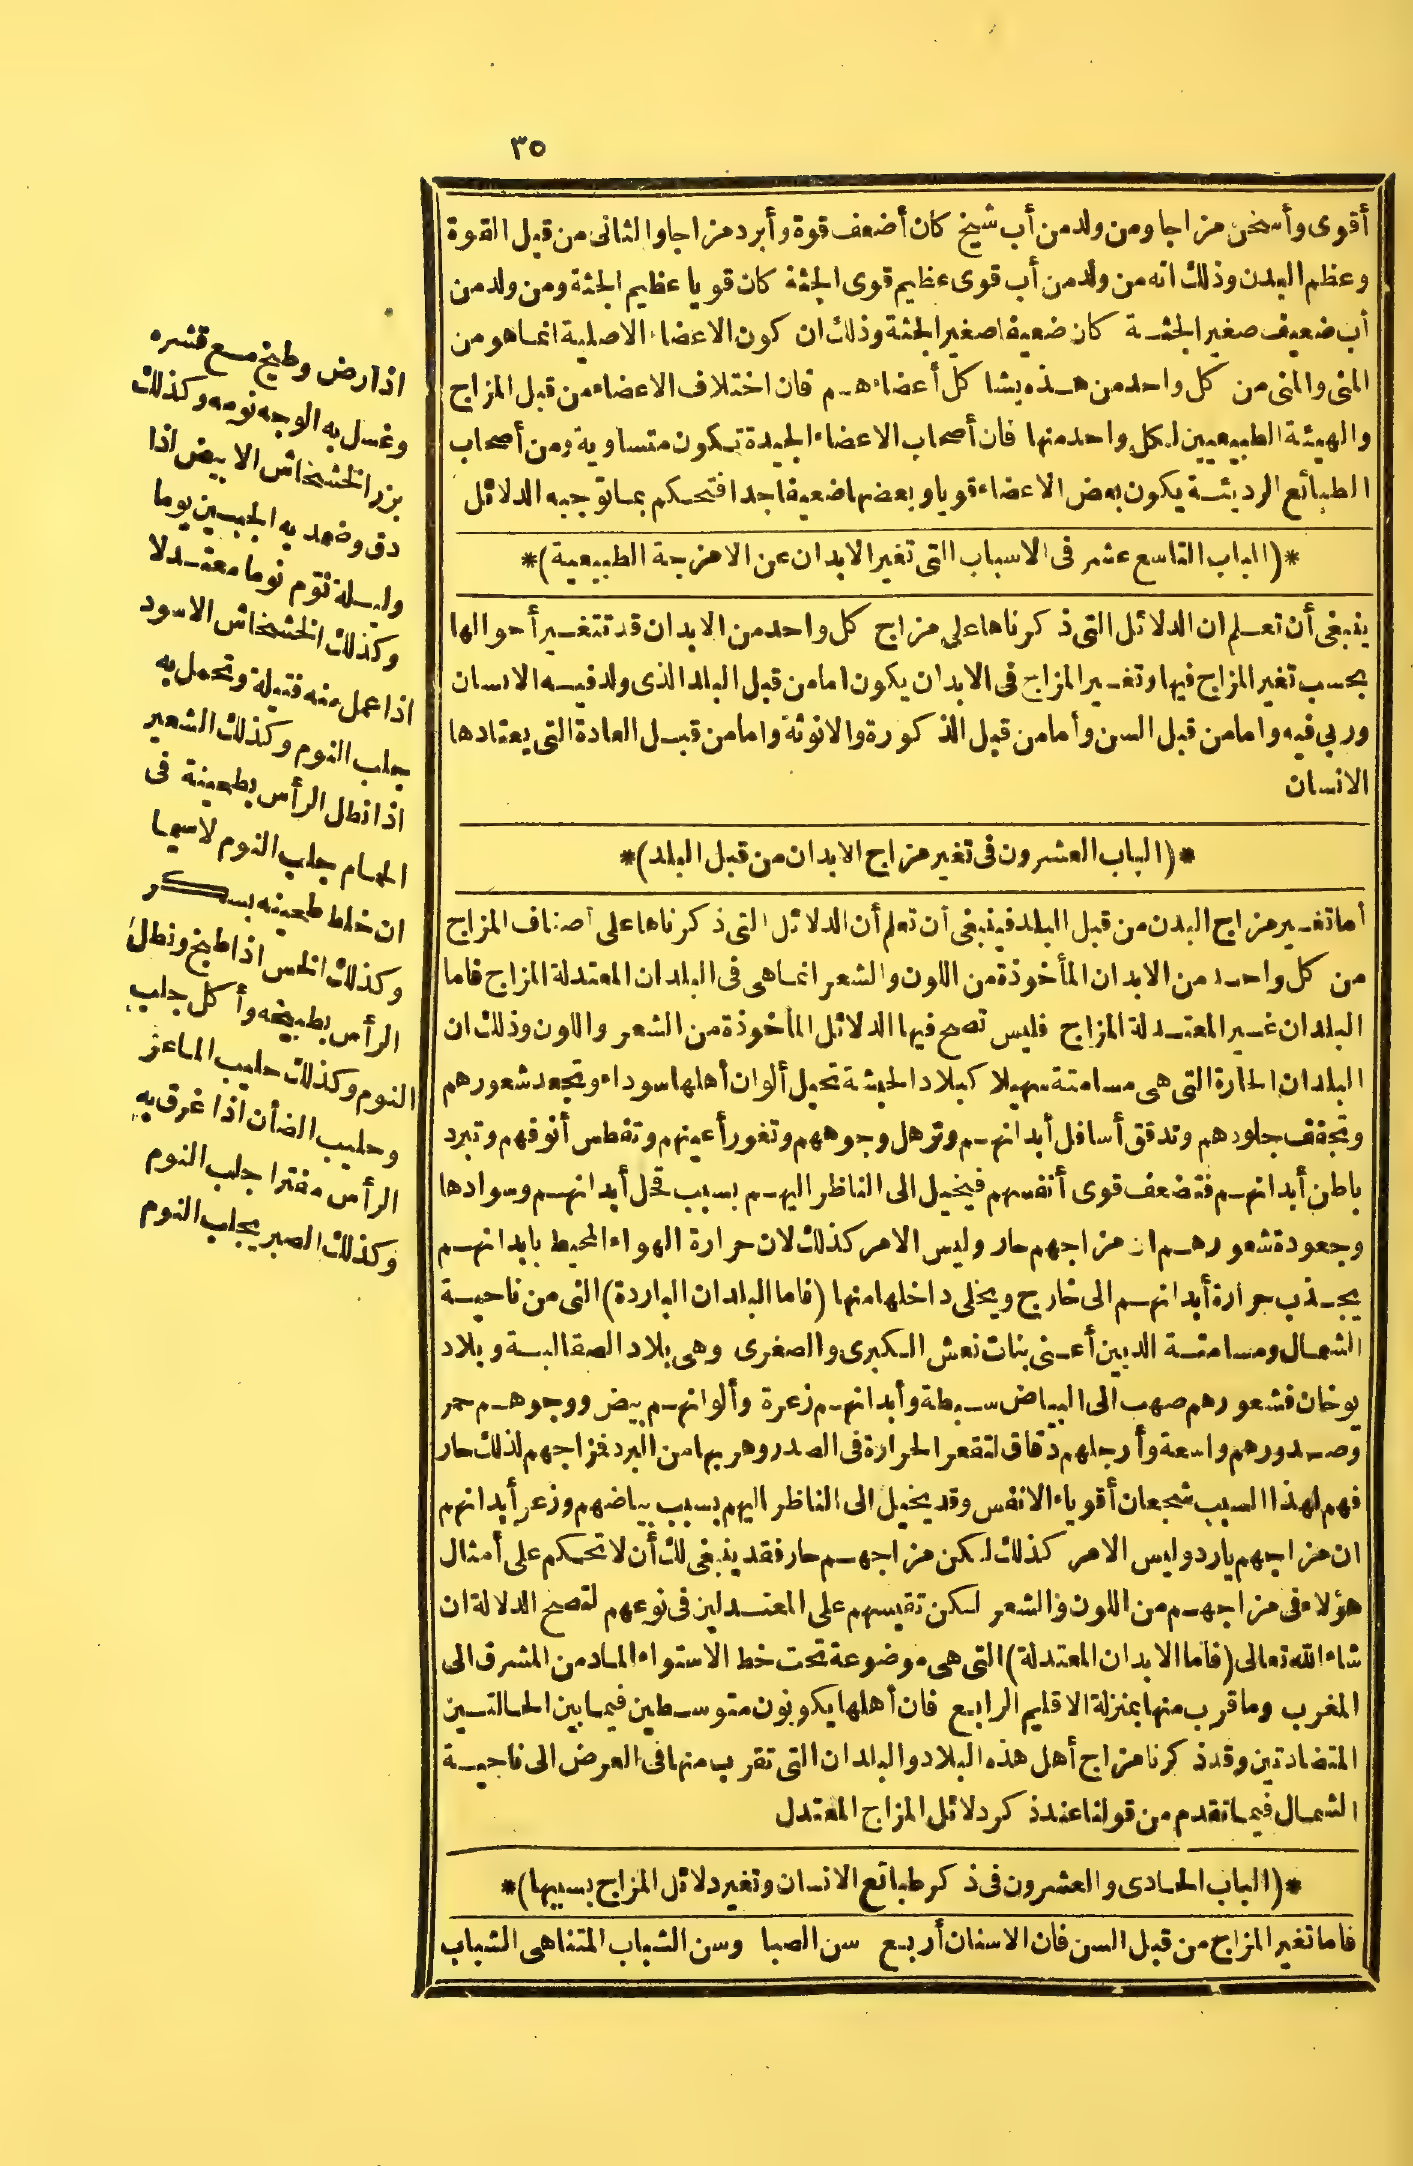 ٣٥
أقوى وأسخن مزاجا ومن ولد من أب شيخ كان أضعف قوة وأبرد مزاجا والثانى من قبل القوة
وعظم البدن وذلك انه من ولد من أب قوى عظيم قوى الجثة كان قويا عظيم الجثة ومن ولد من
أب ضعيف صغير الجثة كان ضعيفا صغير الجثة وذلك ان كون الاعضاء الاصلية انما هو من
المنى والمنى من كل واحد من هذه يشاكل أعضاءهم فان اختلاف الاعضاء من قبل المزاج
والهيئة الطبيعيين لكل واحد منها فان أصحاب الاعضاء الجيدة تكون متساوية ومن أصحاب
الطبائع الرديئة يكون بعض الاعضاء قويا وبعضها ضعيفا جدا فتحكم بما توجبه الدلائل
*(الباب التاسع عشر فى الاسباب التى تغير الابدان عن الامزجة الطبيعية)*
ينبغى أن تعلم ان الدلائل التى ذكرناها على مزاج كل واحد من الابدان قد تتغير أحوالها
بحسب تغير المزاج فيها وتغير المزاج فى الابدان يكون اما من قبل البلد الذى ولد فيه الانسان
وربى فيه واما من قبل السن وأما من قبل الذكورة والانوثة واما من قبل العادة التى يعتادها
الانسان
*(الباب العشرون فى تغير مزاج الابدان من قبل البلد)*
أما تغير مزاج البدن من قبل البلد فينبغى أن تعلم أن الدلائل التى ذكرناها على أصناف المزاج
من كل واحد من الابدان المأخوذة من اللون والشعر انما هى فى البلدان المعتدلة المزاج فاما
البلدان غير المعتدلة المزاج فليس تصح فيها الدلائل المأخوذة من الشعر واللون وذلك ان
البلدان الحارة التى هى مسامتة سهيلا كبلاد الحبشة تحيل ألوان أهلها سوداء وتجعد شعورهم
وتجفف جلودهم وتدقق أسافل أبدانهم وترهل وجوههم وتغور أعينهم وتفطس أنوفهم وتبرد
باطن أبدانهم فتضعف قوى أنفسهم فيخيل الى الناظر اليهم بسبب قحل أبدانهم وسوادها
وجعودة شعورهم ان مزاجهم حار وليس الامر كذلك لان حرارة الهواء المحيط بابدانهم
يجذب حرارة أبدانهم الى خارج ويخلى داخلها منها (فاما البلدان الباردة) التى من ناحية
الشمال ومسامتة الدبين أعنى بنات نعش الكبرى والصغرى وهى بلاد الصقالبة وبلاد
يوخان فشعورهم صهب الى البياض سبطة وأبدانهم زعرة وألوانهم بيض ووجوههم حمر
وصدورهم واسعة وأرجلهم دقاق لتقعر الحرارة فى الصدر وهربها من البرد فمزاجهم لذلك حار
فهم لهذا السبب شجعان أقوياء الانفس وقد يخيل الى الناظر اليهم بسبب بياضهم وزعر أبدانهم
ان مزاجهم بارد وليس الامر كذلك لكن مزاجهم حار فقد ينبغى لك أن لا تحكم على أمثال
هؤلاء فى مزاجهم من اللون والشعر لكن تقيسهم على المعتدلين فى نوعهم لتصح الدلالة ان
شاء الله تعالى (فاما الابدان المعتدلة) التى هى موضوعة تحت خط الاستواء الماد من المشرق الى
المغرب وما قرب منها بمنزلة الاقليم الرابع فان أهلها يكونون متوسطين فيما بين الحالتين
المتضادتين وقد ذكرنا مزاج أهل هذه البلاد والبلدان التى تقرب منها فى العرض الى ناحية
الشمال فيما تقدم من قولنا عند ذكر دلائل المزاج المعتدل
*(الباب الحادى والعشرون فى ذكر طبائع الانسان وتغير دلائل المزاج بسببها)*
فاما تغير المزاج من قبل السن فان الاسنان أربع سن الصبا وسن الشباب المتناهى الشباب
اذا رض وطبخ مع قشره
وغسل به الوجه نومه وكذلك
بزر الخشخاش الابيض اذا
دق وضمد به الجبين يوما
وليلة نوّم نوما معتدلا
وكذلك الخشخاش الاسود
اذا عمل منه فتيلة وتحمل به
جلب النوم وكذلك الشعير
اذا نطل الرأس بطحينة فى
الحمام جلب النوم لاسيما
ان خلط طحينه بسكر
وكذلك الخس اذا طبخ ونطل
الرأس بطبيخه وأكل جلب
النوم وكذلك حليب الماعز
وحليب الضأن اذا غرق به
الرأس مفترا جلب النوم
وكذلك الصبر يجلب النوم